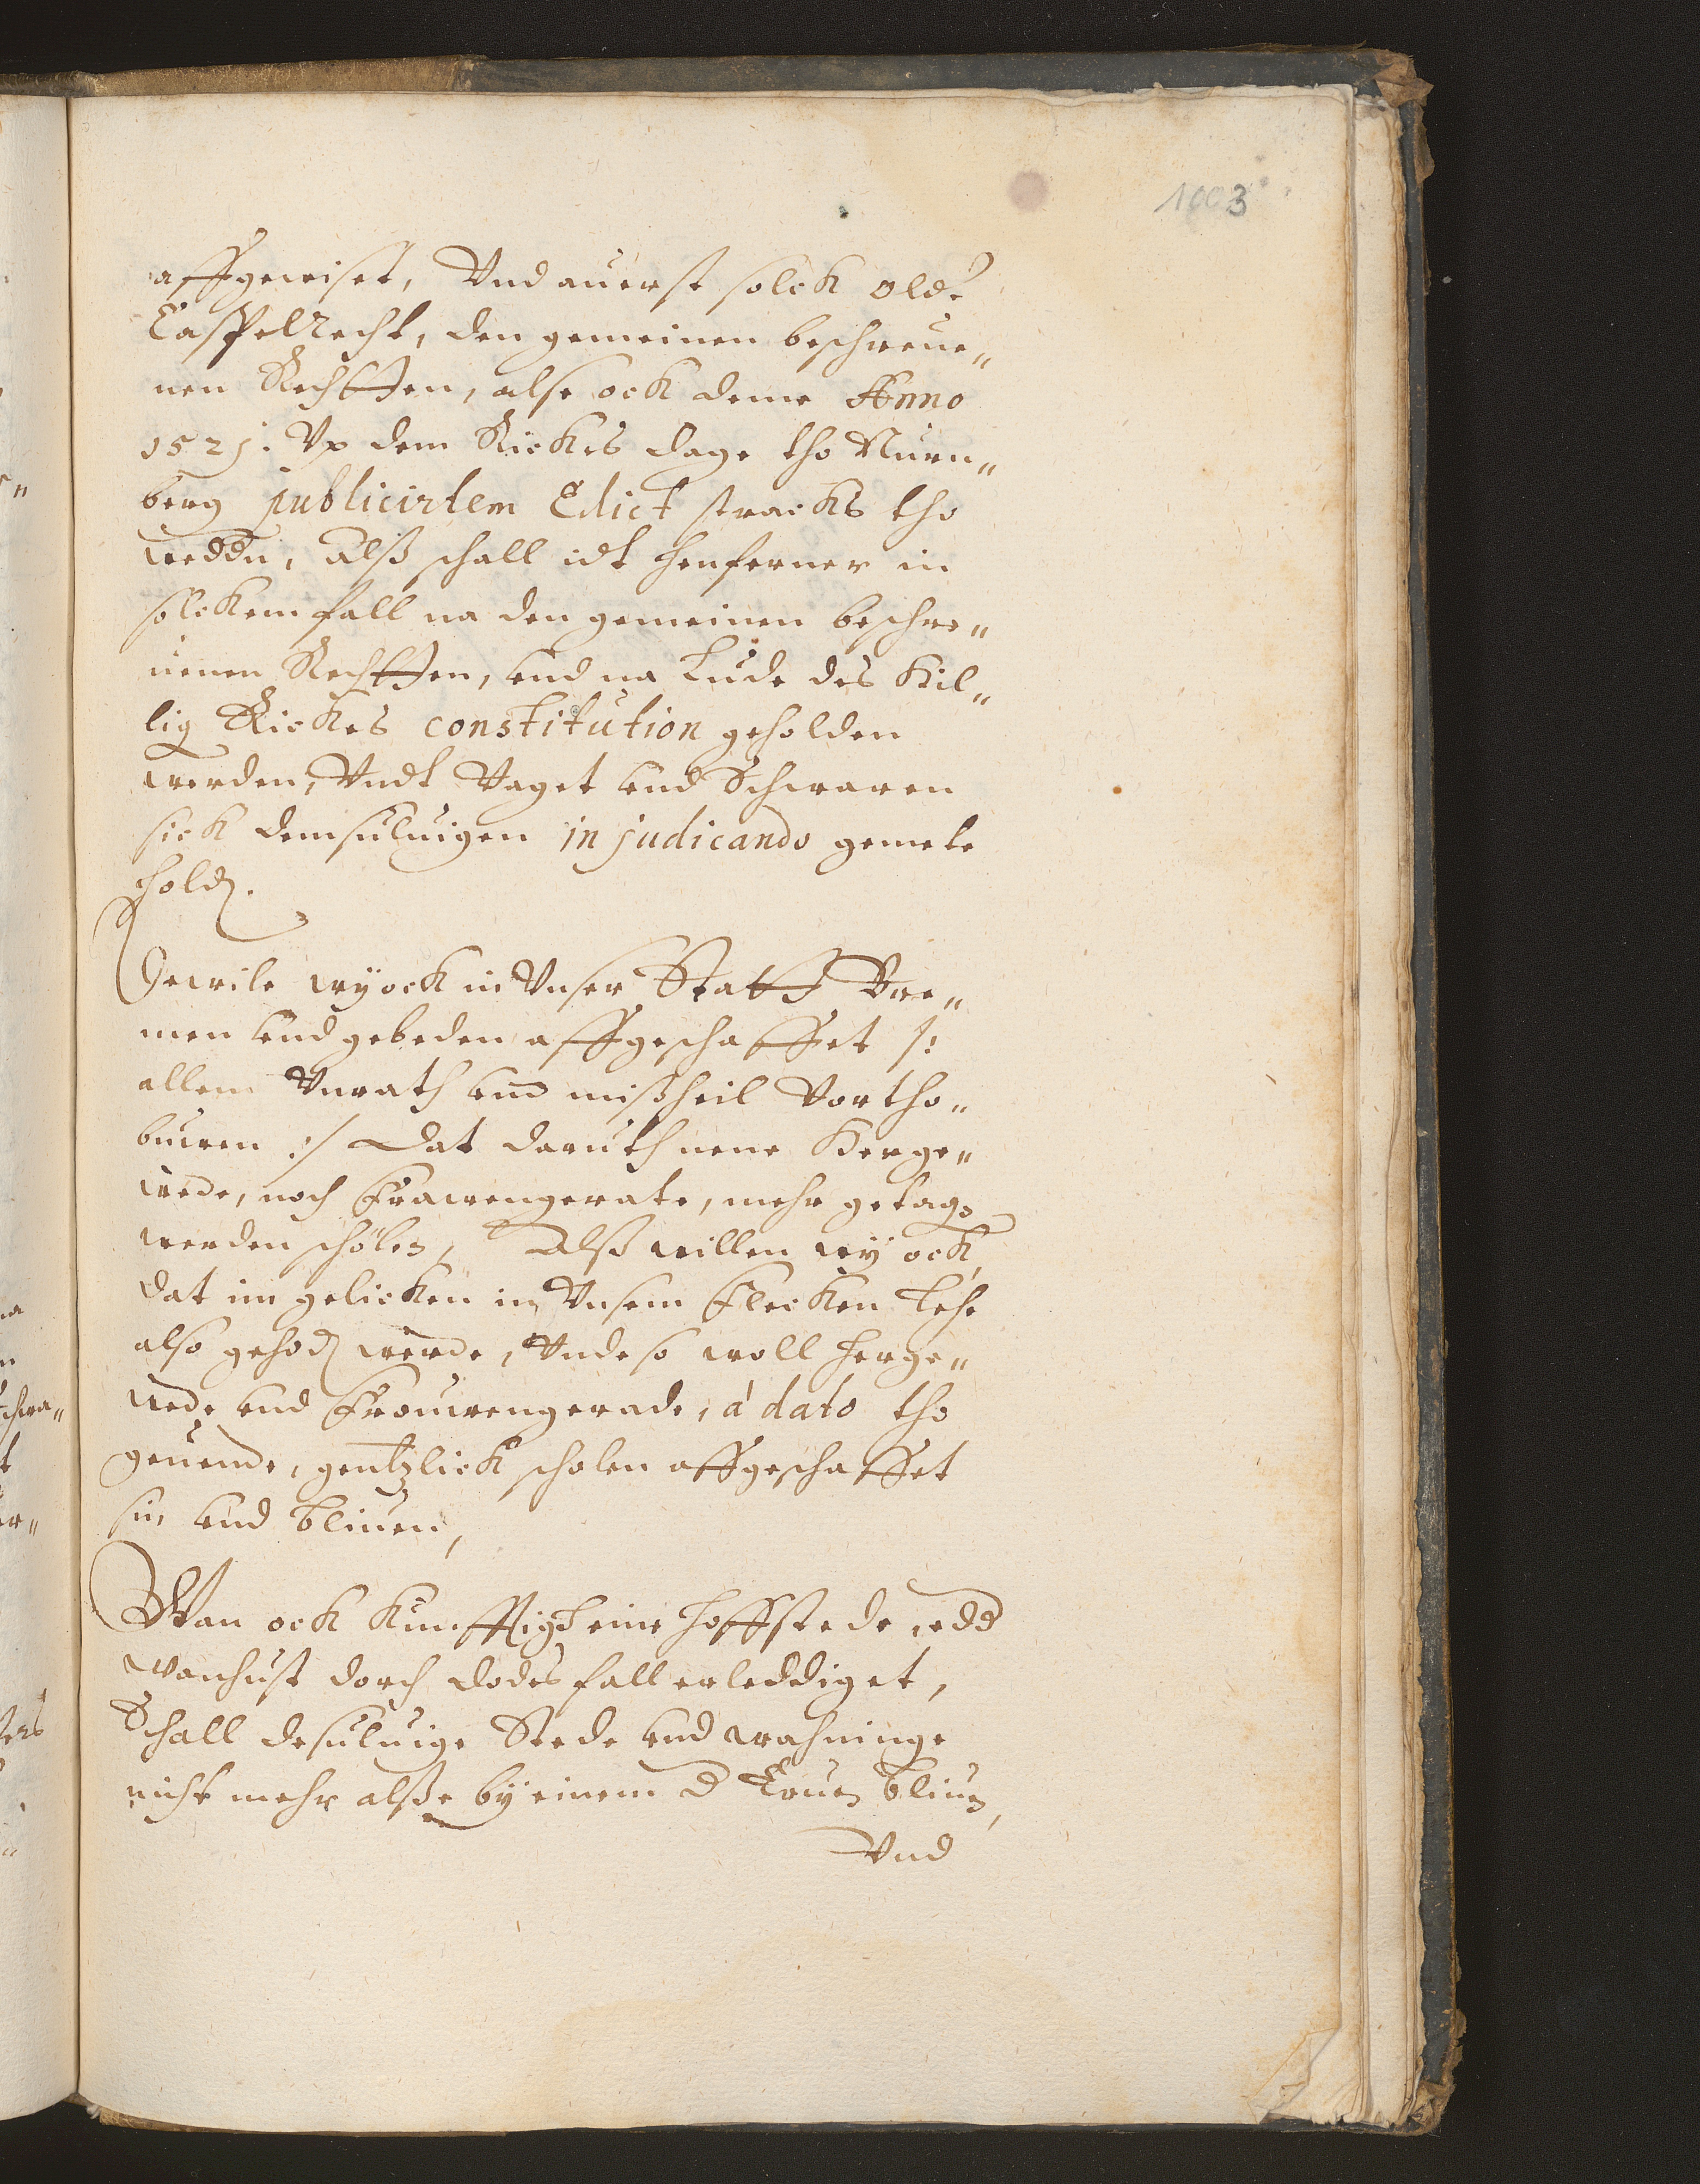 1003
affgewiset, Vnd auerst solck olde
Caspelrecht, den gemeinen beschreue„
nen Rechtten, alse ock deme Anno
1521. Vp dem Rickes dage tho Nürn„
berg publicirtem Edict stracks tho
weddn, alß schall idt henferner in
solckem fall na den gemeinen beschre„
uenen Rechtten, vnd na Lude des Hil„
lig Rickes constitution geholden
werden, Vndt Vaget vnd Schwaren
sick demsuluigen in judicando gemete
hold.
Dewile wy ock in Vnser Statt Bre„
men vnd gebeden affgeschaffet /:
allem Vnrath vnd mißheil Vortho„
buwen :/ Dat daruth nene Herge„
wede, noch Frawengerate, mehr getagē
werden scholen, Alß willen wy ock,
dat im gelicken in Vnsem Flecken Lehe
also gehold werde, Vnde so woll herge„
wede vnd Frouwengerade, á dato tho
geuende, gentzlick scholen affgeschaffet
sin vnd bliuen,
Wan ock kunfftigh eine hoffstede, edd
wonhust dorch dodes fall erleddiget,
Schall desuluige Stede vnd wahninge
nicht mehr alße by einem d Eruen bliuen,
Vnd